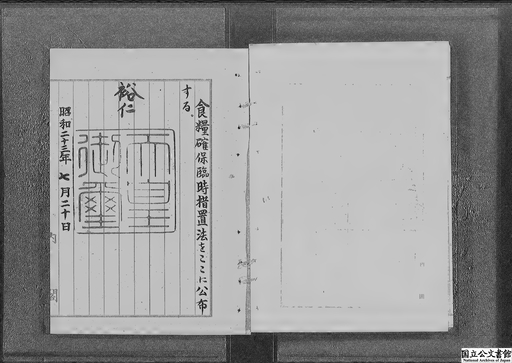 食糧確保臨時措置法をここに公布
する。
裕仁
天皇
御璽
昭和二十三年七月二十日
内閣
国立公文書館
National Archives of Japan